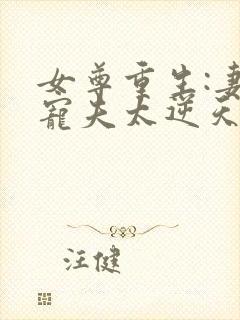 女尊重生:妻
寵夫太逆天
汪健